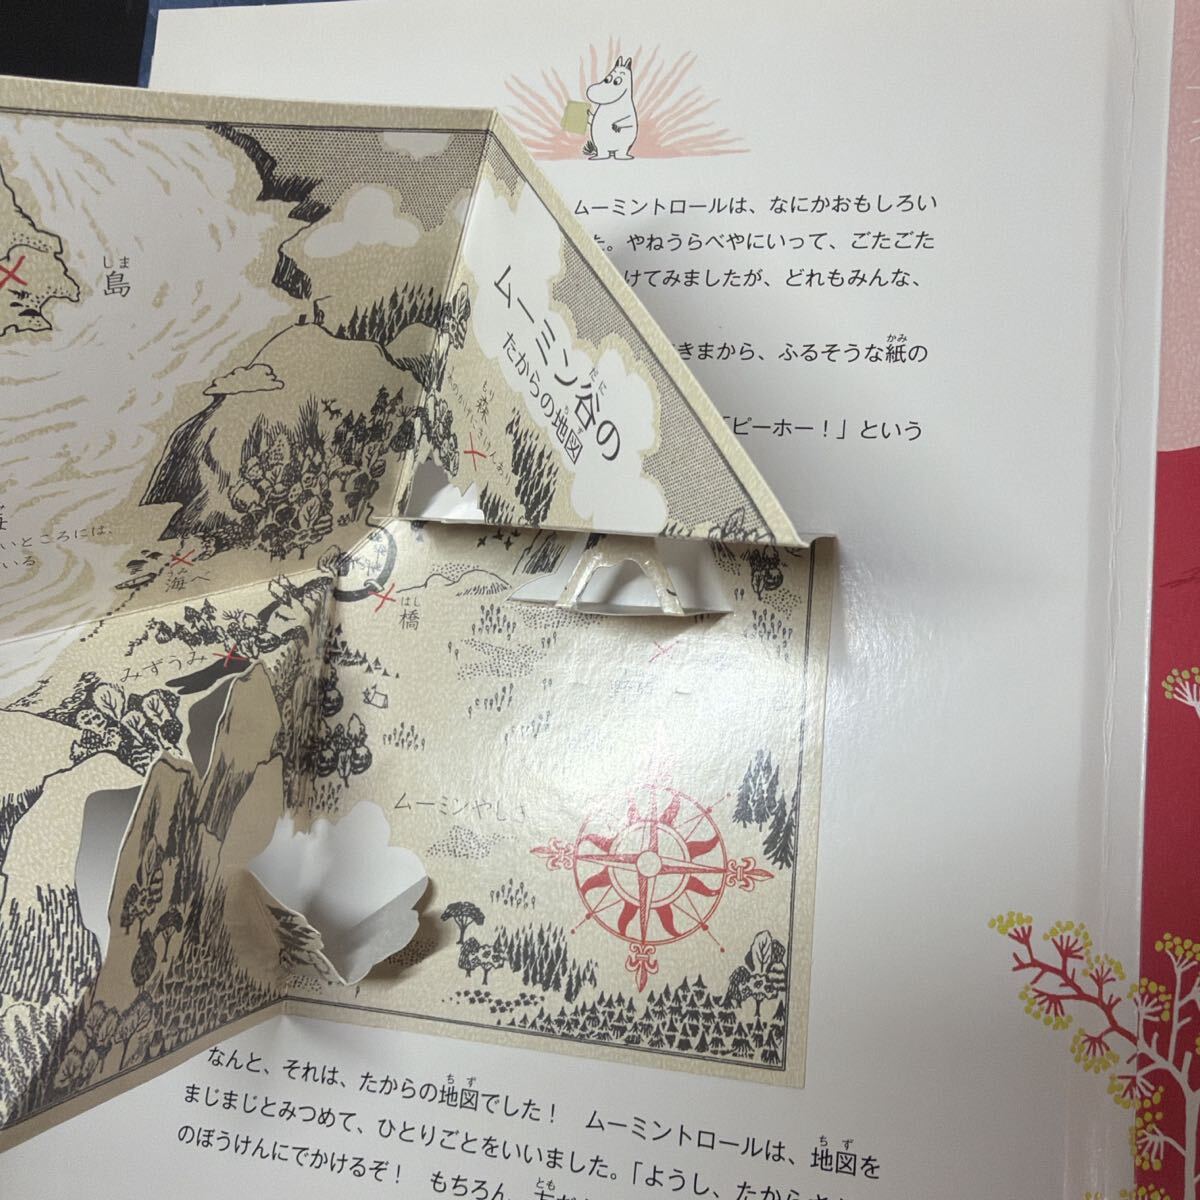 ムーミントロールは、なにかおもしろい
た。やねうらべやにいって、ごたごた
けてみましたが、どれもみんな、
きまから、ふるそうな紙の
かみ
「ピーホー!」という
ムーミン谷の
だに
たからの地図
ちず
しま
島
もり
森
いところには、
いる
うみ
海へ
はし
橋
みずうみ
ムーミンやしき
なんと、それは、たからの地図でした! ムーミントロールは、地図を
ちず
ちず
まじまじとみつめて、ひとりごとをいいました。「ようし、たからさ
のぼうけんにでかけるぞ! もちろん、
とも